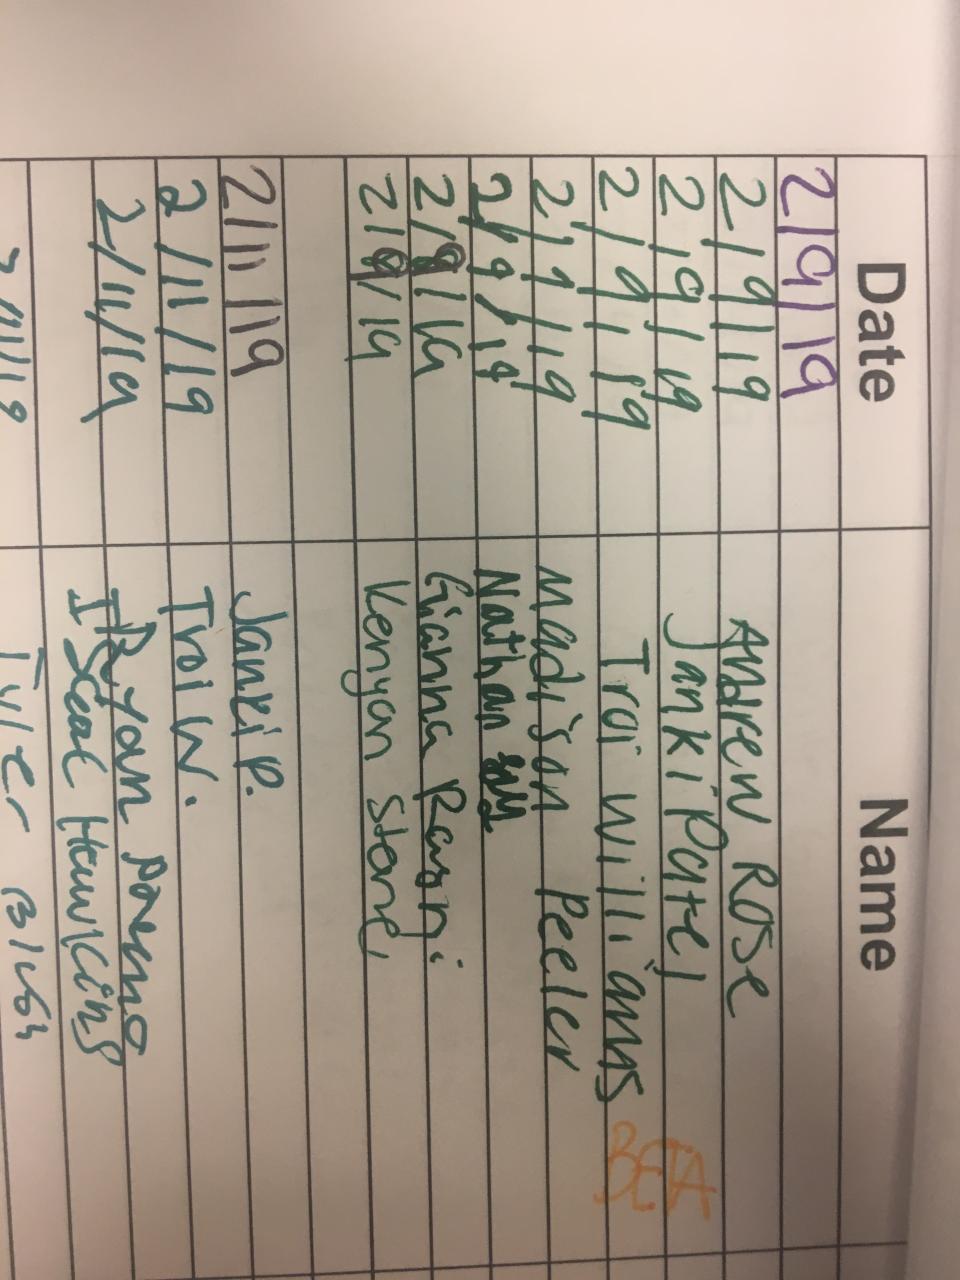 Date Name
2/9/19
2/9/19 Andrew Rose
2/9/19 Janki Patel
2/9/19 Troi Williams BETA
2/9/19 Madison Peeler
2/9/19 Nathan
2/9/19 Gianna Rawni
2/9/19 Kenyan Stone
2/11/19 Janki P.
2/11/19 Troi W.
2/11/19 Ryan
Iseal Hawkins
Tyler